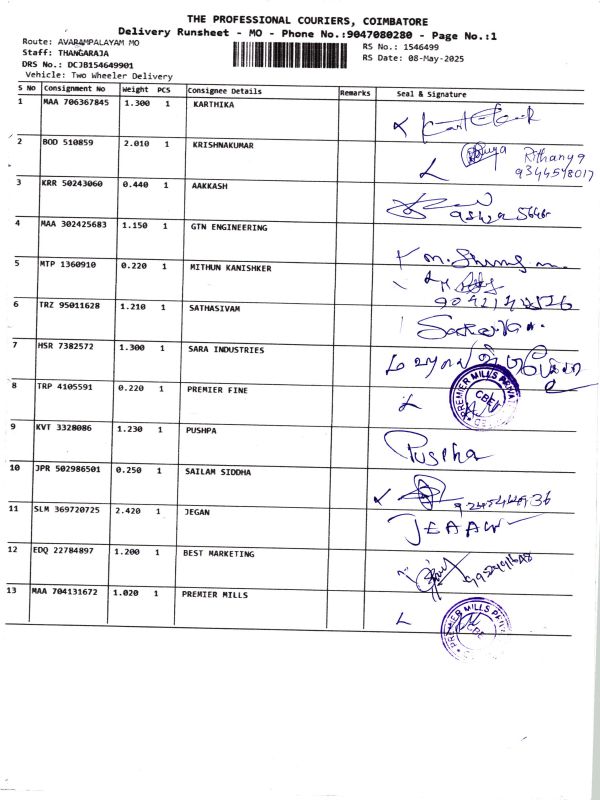 THE PROFESSIONAL COURIERS, COIMBATORE
Delivery Runsheet - MO - Phone No.:9047080280 - Page No.:1
Route: AVARAMPALAYAM MO
RS No.: 1546499
Staff: THANGARAJA
RS Date: 08-May-2025
DRS No.: DCJB154649901
Vehicle: Two Wheeler Delivery
S No Consignment No Weight PCS Consignee Details Remarks Seal & Signature
1 MAA 706367845 1.300 1 KARTHIKA
2 BOD 510859 2.010 1 KRISHNAKUMAR
Rithanya
9344578017
3 KRR 50243060 0.440 1 AAKKASH
4 MAA 302425683 1.150 1 GTN ENGINEERING
5 MTP 1360910 0.220 1 MITHUN KANISHKER
6 TRZ 95011628 1.210 1 SATHASIVAM
7 HSR 7382572 1.300 1 SARA INDUSTRIES
8 TRP 4105591 0.220 1 PREMIER FINE
PREMIER MILLS
CBE
9 KVT 3328086 1.230 1 PUSHPA
Puspha
10 JPR 502986501 0.250 1 SAILAM SIDDHA
11 SLM 369720725 2.420 1 JEGAN
12 EDQ 22784897 1.200 1 BEST MARKETING
13 MAA 704131672 1.020 1 PREMIER MILLS
PREMIER MILLS
CBE